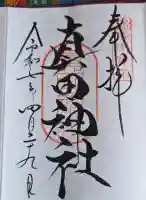 奉拝
真田神社
令和七年四月二十九日